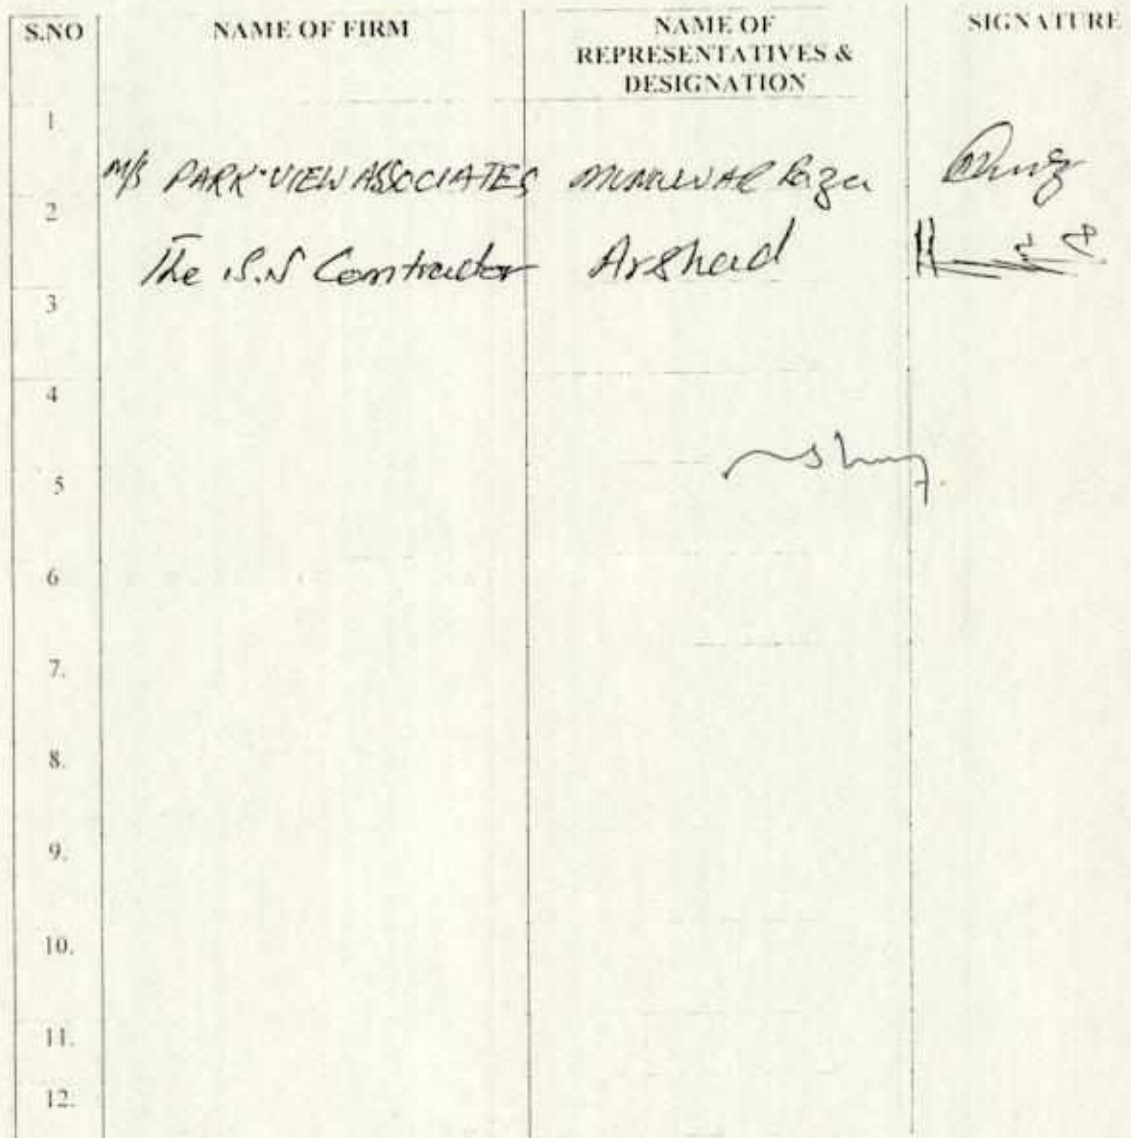 S.NO NAME OF FIRM NAME OF REPRESENTATIVES & DESIGNATION SIGNATURE
1
M/s PARK-VIEW ASSOCIATES Raza
2
The S.N Contractor Arshad
3
4
5
6
7.
8.
9.
10.
11.
12.